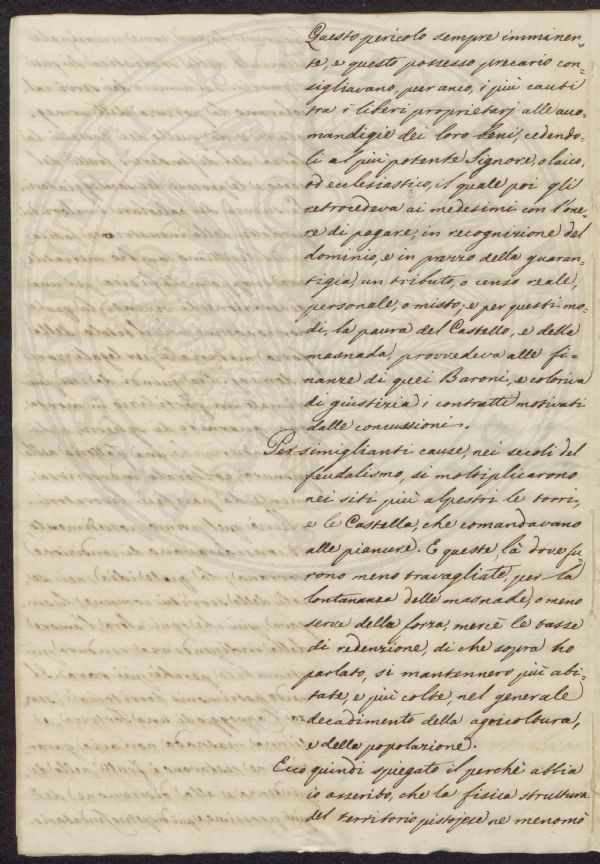 Questo pericolo sempre imminen=
te, e questo possesso precario con=
sigliavano, per anco, i più cauti
tra i liberi proprietarj alle acco=
mandigie dei loro beni, cedendo=
li al più potente Signore, o laico,
od ecclesiastico, il quale poi gli
retrocedeva ai medesimi con l'one=
re di pagare, in recognizione del
dominio, e in prezzo della guaran=
tigia, un tributo, o censo reale,
personale, o misto; e per questi mo=
di, la paura del Castello, e della
masnada, provvedeva alle fi=
nanze di quei Baroni, e coloriva
di giustizia i contratti motivati
dalle concussioni.
Per simiglianti cause, nei secoli del
feudalismo, si moltiplicarono
nei siti più alpestri le torri,
e le Castella, che comandavano
alle pianure. E queste, là dove fu=
rono meno travagliate, per la
lontananza delle masnade, o meno
serve della forza, mercè le tasse
di redenzione, di che sopra ho
parlato, si mantennero più abi=
tate, e più colte, nel generale
decadimento della agricoltura,
e della popolazione.
Ecco quindi spiegato il perchè abbia
io asserito, che la fisica struttura
del territorio pistojese ne menomò